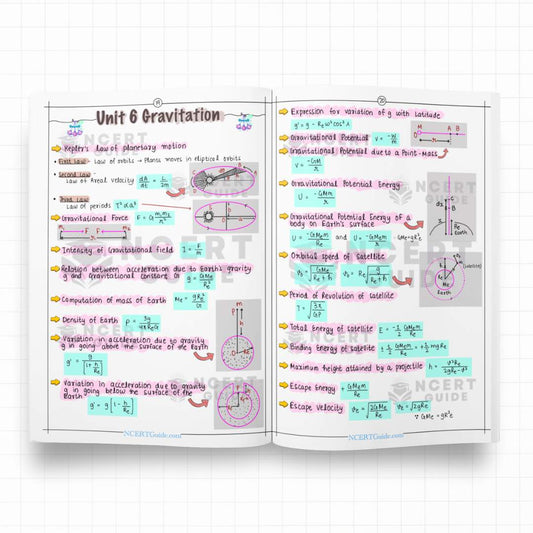 19
Unit 6 Gravitation
Kepler's Law of planetary motion
First Law :- Law of orbits → Planets moves in eliptical orbits
Second Law :-
Law of Areal velocity dA/dt = L/2m
Third Law :-
Law of periods T² ∝ a³
Gravitational Force F = G m₁m₂/r²
Intensity of Gravitational field I = F/m
Relation between acceleration due to Earth's gravity
g and Gravitational constant G: g = GMe/Re²
Computation of mass of Earth Me = gRe²/G
Density of Earth ρ = 3g/4πReG
Variation in acceleration due to gravity
g in going above the surface of the Earth
Variation in acceleration due to gravity
g in going below the surface of the
Earth
g' = g[1 - h/Re]
NCERTGuide.com
20
Expression for variation of g with Latitude
g' = g - Reω²cos²λ
Gravitational Potential V = -W/m
Gravitational Potential due to a Point-Mass
V = -GM/r
Gravitational Potential Energy
U = -GMm/r
Gravitational Potential Energy of a
body on Earth's surface
U = -GMem/Re and U = -GMem/r
Orbital speed of Satellite
Vo = √GMe/Re+h Vo = Re√g/Re+h
(satellite)
Earth
Period of Revolution of satellite
Total Energy of satellite E = -1/2 GMem/Re
Binding Energy of satellite
Maximum height attained by a projectile
Escape Energy + GMem/Re
Escape Velocity Ve = √2GMe/Re Ve = √2gRe
∵ GMe = gR²e
NCERTGuide.com
NCERT
GUIDE